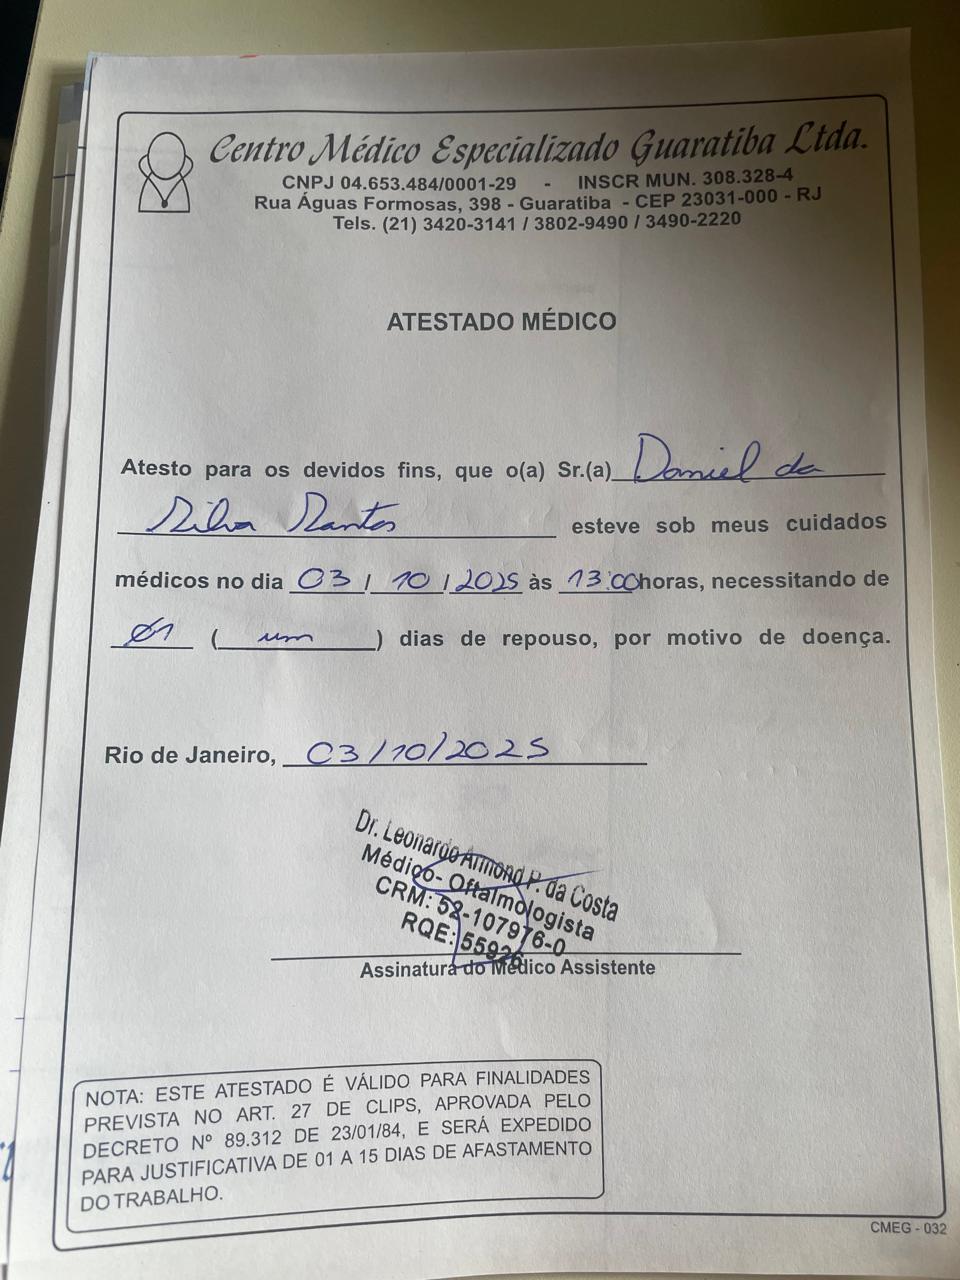 Centro Médico Especializado Guaratiba Ltda.
CNPJ 04.653.484/0001-29 - INSCR MUN. 308.328-4
Rua Águas Formosas, 398 - Guaratiba - CEP 23031-000 - RJ
Tels. (21) 3420-3141 / 3802-9490 / 3490-2220
ATESTADO MÉDICO
Atesto para os devidos fins, que o(a) Sr.(a) Daniel da
Silva Santos esteve sob meus cuidados
médicos no dia 03 / 10 / 2025 às 13:00 horas, necessitando de
01 ( um ) dias de repouso, por motivo de doença.
Rio de Janeiro, 03/10/2025
Dr. Leonardo Armond P. da Costa
Médico- Oftalmologista
CRM: 52-107976-0
RQE: 55926
Assinatura do Médico Assistente
NOTA: ESTE ATESTADO É VÁLIDO PARA FINALIDADES
PREVISTA NO ART. 27 DE CLIPS, APROVADA PELO
DECRETO Nº 89.312 DE 23/01/84, E SERÁ EXPEDIDO
PARA JUSTIFICATIVA DE 01 A 15 DIAS DE AFASTAMENTO
DO TRABALHO.
CMEG - 032